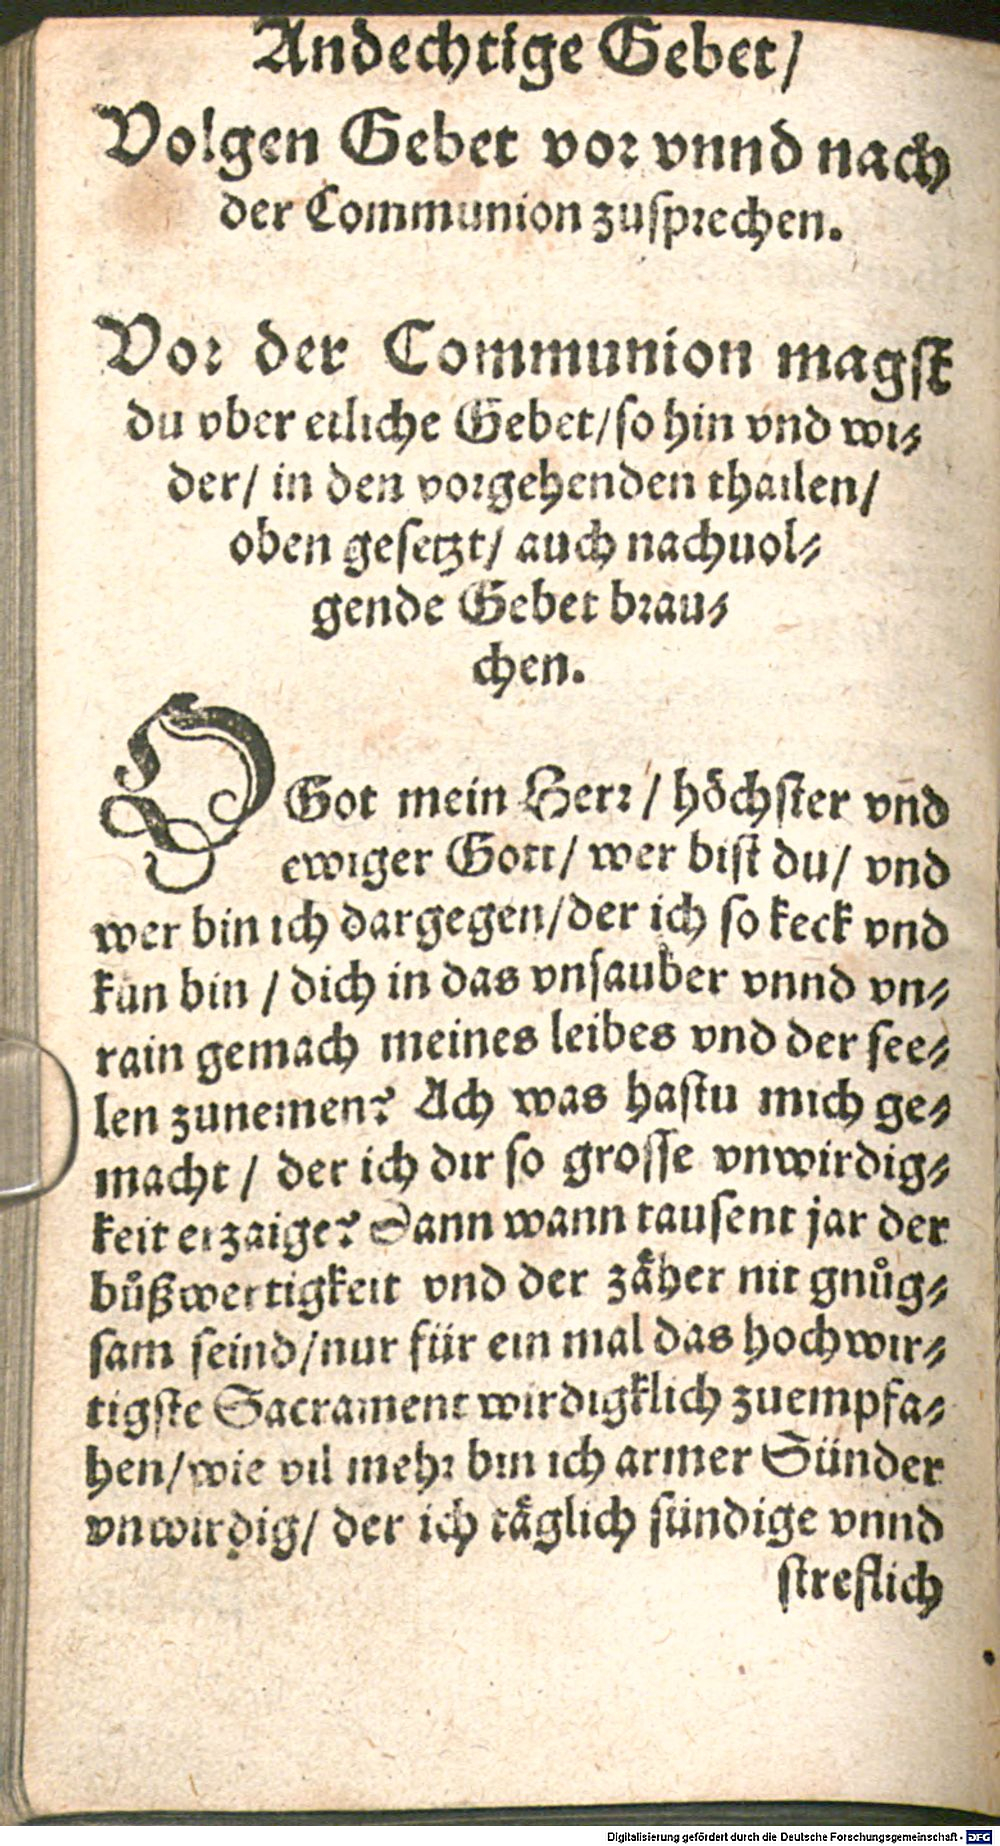 Andechtige Gebet/
Volgen Gebet vor vnnd nach
der Communion zusprechen.
Vor der Communion magst
du vber etliche Gebet/ so hin vnd wi-
der/ in den vorgehenden thailen/
oben gesetzt/ auch nachuol-
gende Gebet brau-
chen.
O Got mein Herr / höchster vnd
ewiger Gott/ wer bist du/ vnd
wer bin ich dargegen/ der ich so keck vnd
kün bin / dich in das vnsauber vnnd vn-
rain gemach meines leibes vnd der see-
len zunemen? Ach was hastu mich ge-
macht / der ich dir so grosse vnwirdig-
keit erzaige? Dann wann tausent jar der
bůßwertigkeit vnd der zäher nit gnůg-
sam seind/ nur für ein mal das hochwir-
tigste Sacrament wirdigklich zuempfa-
hen/ wie vil mehr bin ich armer Sünder
vnwirdig/ der ich täglich sündige vnnd
streflich
Digitalisierung gefördert durch die Deutsche Forschungsgemeinschaft - DFG